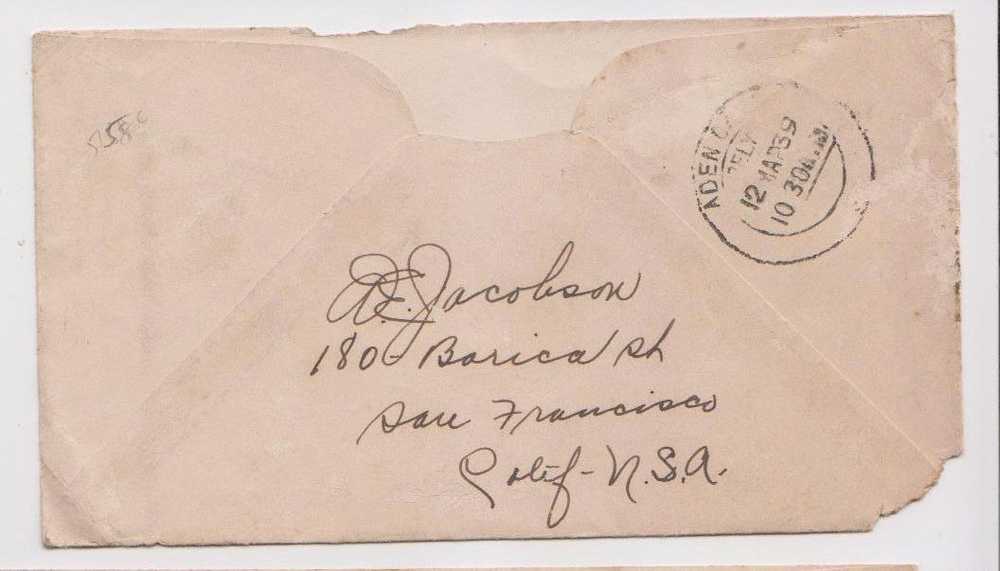 ADEN
12 MAR 39
10 30A.M.
A.E. Jacobson
180 - Borica St
San Francisco
Calif - U.S.A.